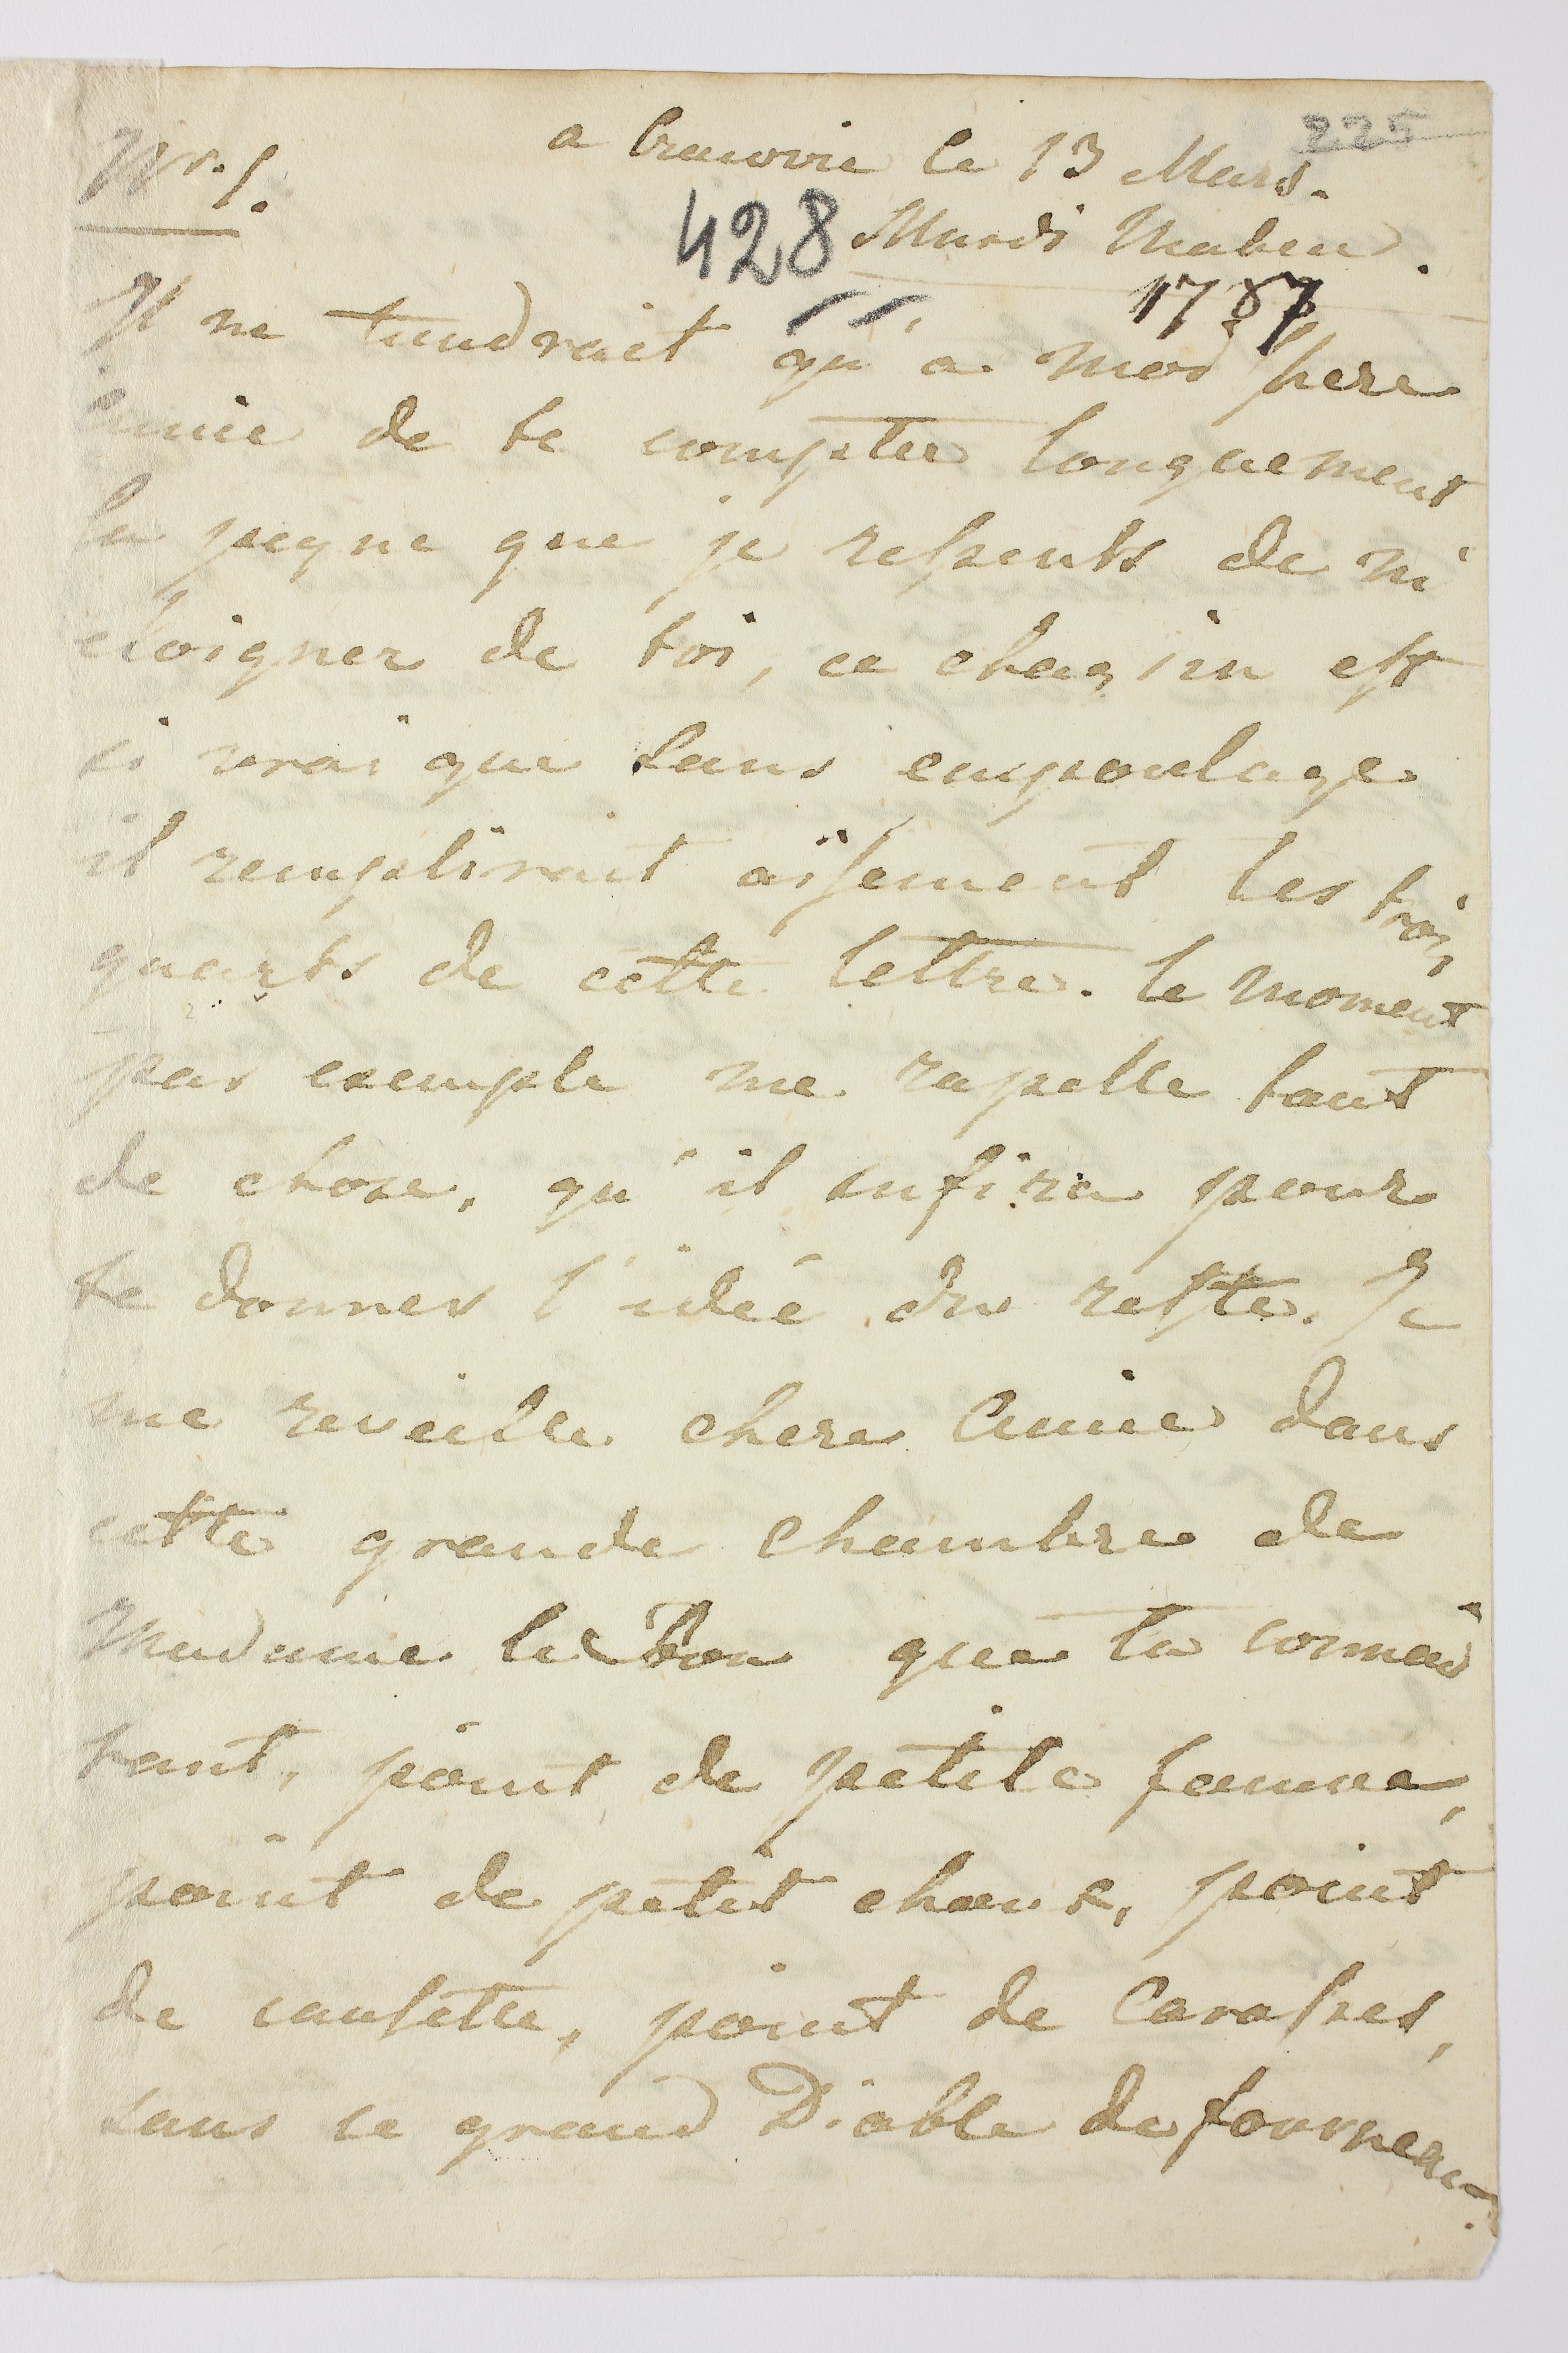 225
Nr. 1.
a Cracovie le 13 Mars.
428 Mardi Matin.
1787
Il ne tiendrait qu'a moi chere
amie de te compter longuement
la peyne que je ressents de m'
eloigner de toi, ce chagrin est
si vrai que sans empoulage
il remplirait aisement les trois
quarts de cette lettre. le moment
par exemple me rapelle tant
de chose, qu'il sufira pour
te donner l'idée du reste. Je
me reveille chere Amie dans
cette grande chambre de
Madame le Bon que tu connais
tant, point de petite femme,
point de petit choux, point
de causette, point de Carasses,
sans ce grand Diable de fourneau